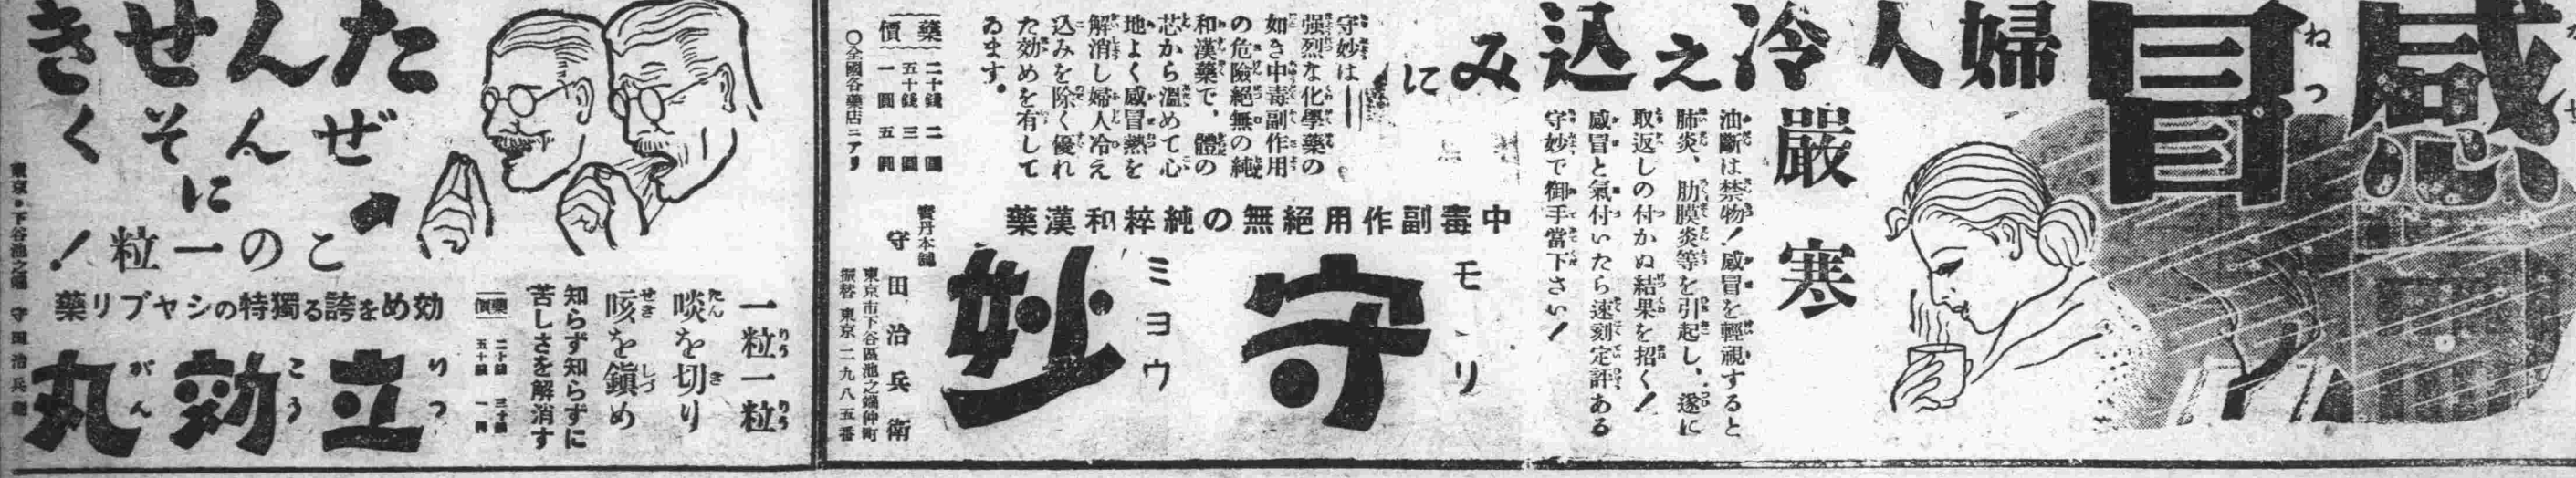 感冒
ねつ
婦人冷え込みに
嚴寒
油斷は禁物！感冒を輕視すると
肺炎、肋膜炎等を引起し、遂に
取返しの付かぬ結果を招く！
感冒と氣付いたら速刻定評ある
守妙で御手當下さい！
守妙は――
强烈な化學藥の
如き中毒副作用
の危險絕無の純
和漢藥で、體の
芯から溫めて心
地よく感冒熱を
解消し婦人冷え
込みを除く優れ
た効めを有して
ゐます。
中毒副作用絕無の純粹和漢藥
守妙
モリ
ミヨウ
藥價
二十錢 二圓
五十錢 三圓
一圓 五圓
〇全國各藥店ニアリ
寶丹本舖
守田治兵衞
東京市下谷區池之端仲町
振替 東京 二九八五番
たんせき
ぜんそく
に
この一粒！
効めを誇る獨特のシヤブリ藥
立効丸
りつ
こう
がん
一粒一粒
啖を切り
咳を鎭め
知らず知らずに
苦しさを解消す
藥價
二十錢 三十錢
五十錢 一圓
東京・下谷池之端 守田治兵衞